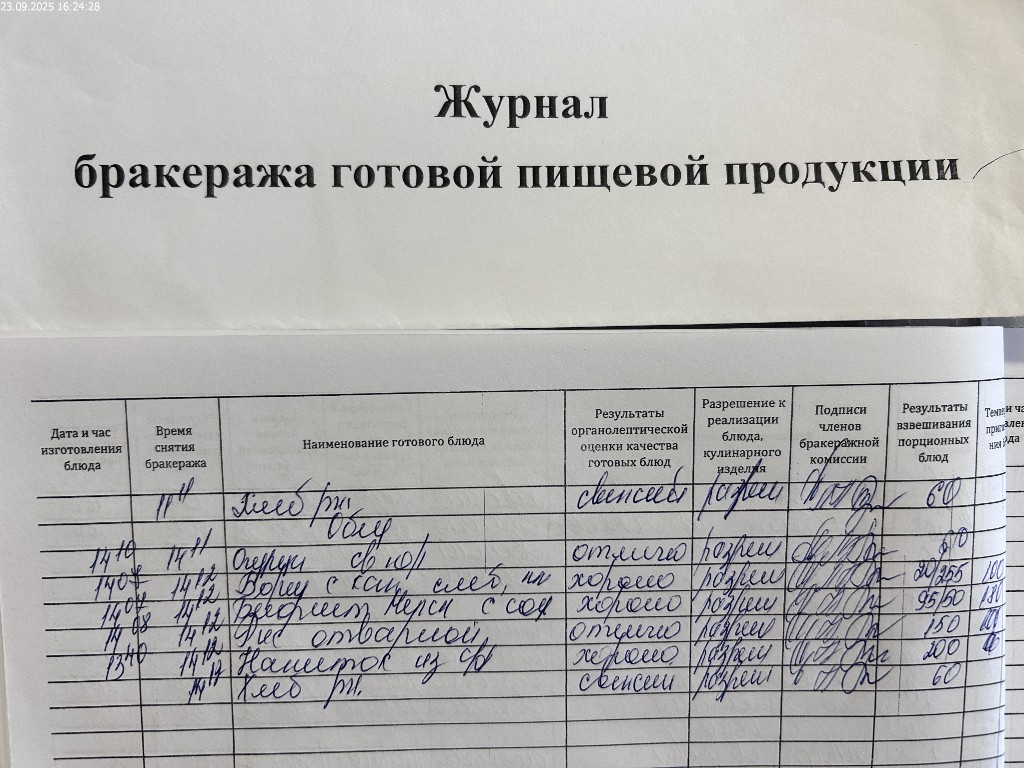 23.09.2025 16:24:28
Журнал
бракеража готовой пищевой продукции
Дата и час изготовления блюда
Время снятия бракеража
Наименование готового блюда
Результаты органолептической оценки качества готовых блюд
Разрешение к реализации блюда, кулинарного изделия
Подписи членов бракеражной комиссии
Результаты взвешивания порционных блюд
11 11 Хлеб рж. свежий разреш 60
Обед
14 10 14 11 Огурец св отлично разреш
14 12 Борщ с кап, смет, хорошо разреш 20/255
14 12 с хорошо разреш 95/50
14 08 14 12 Рис отварной отлично разреш 150
13 40 14 12 Напиток из хорошо разреш 200
14 12 Хлеб рж. разреш 60